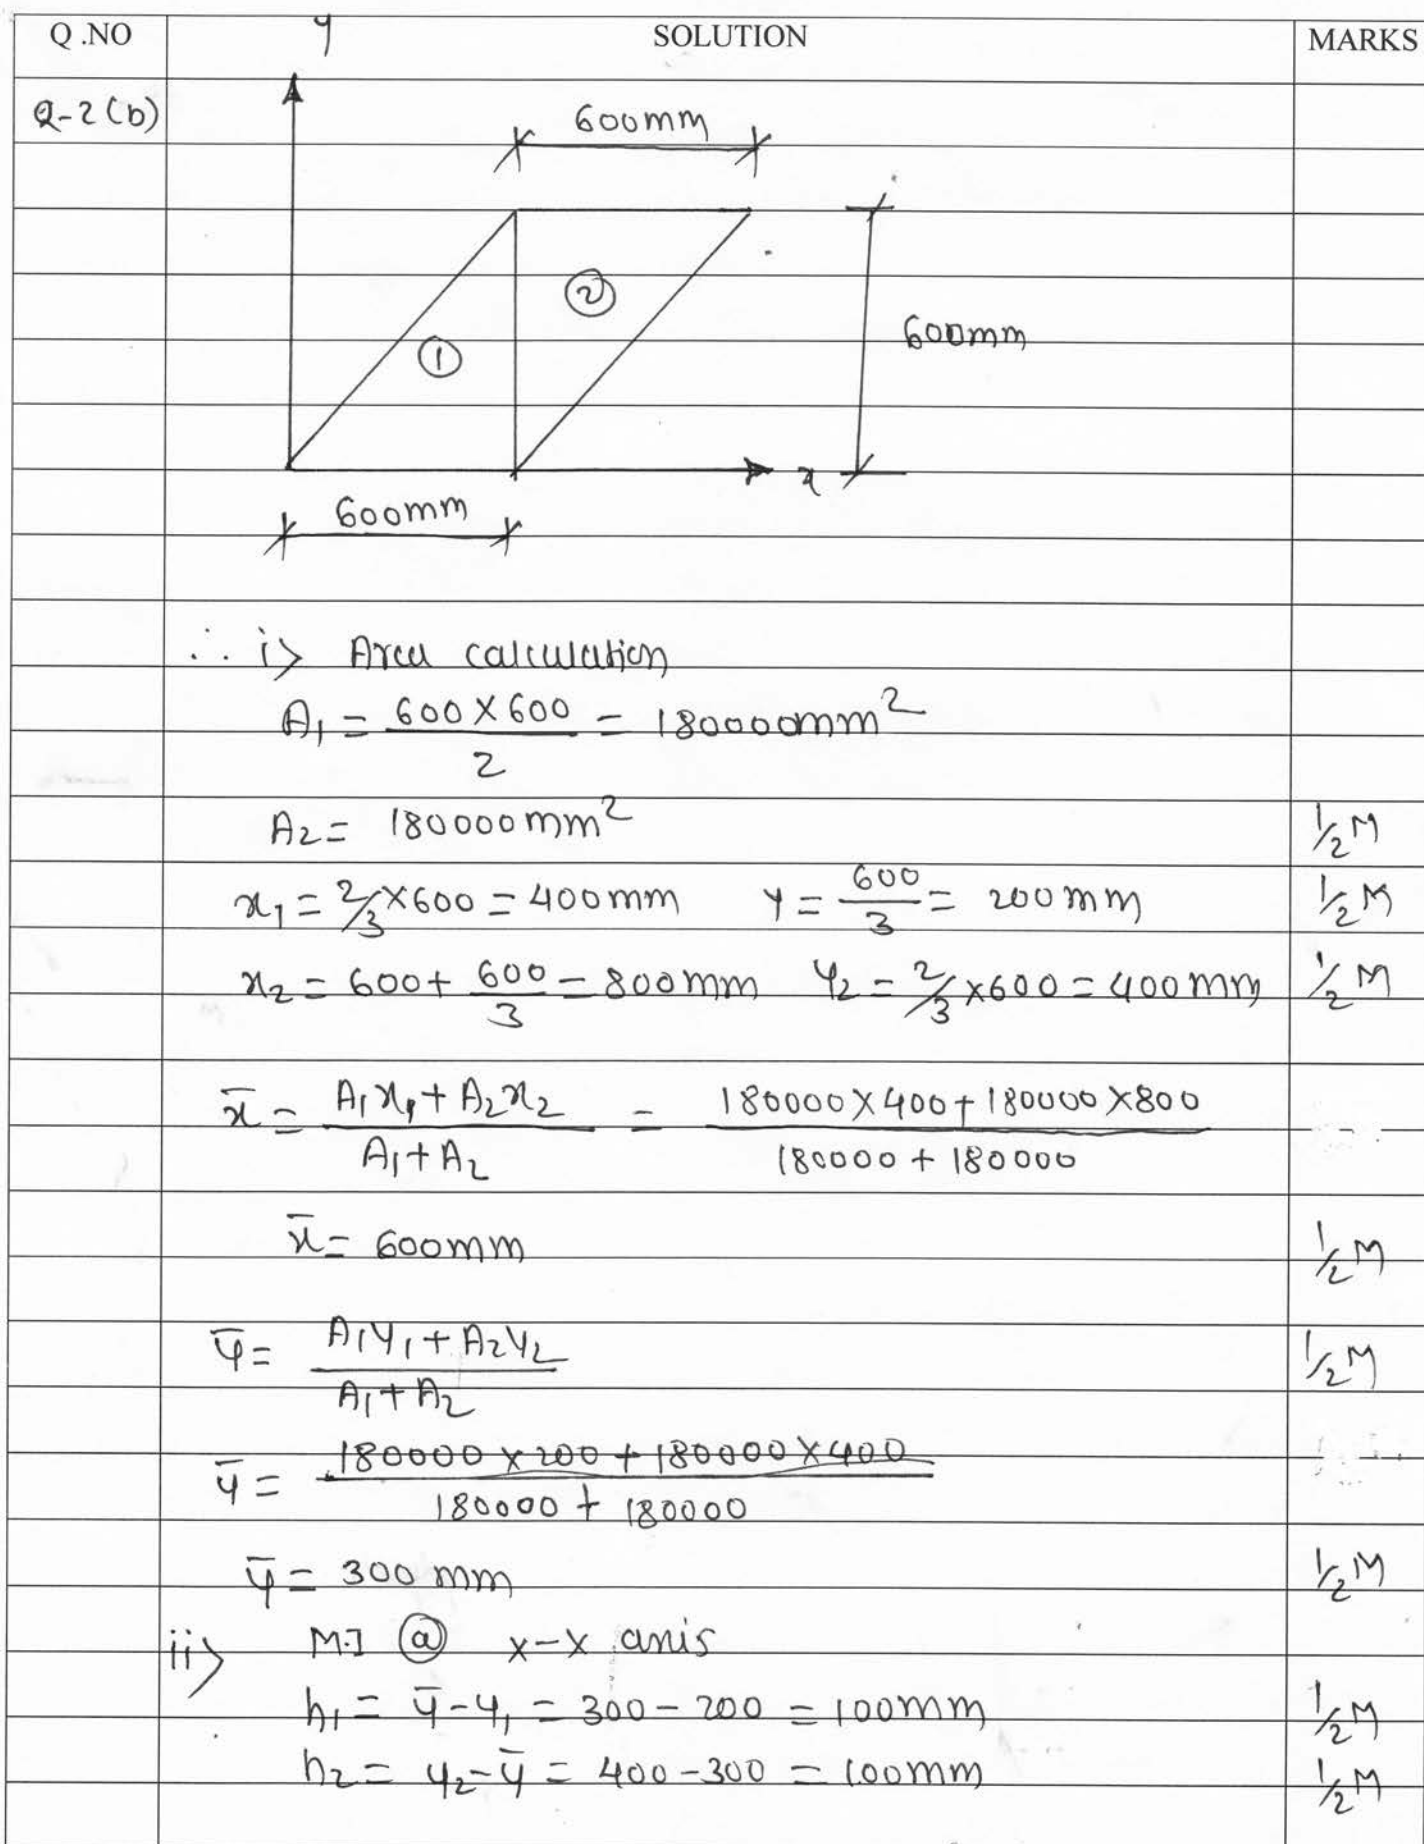 Q .NO SOLUTION MARKS
y
Q-2(b)
600mm
②
①
600mm
x
600mm
∴ i> Area calculation
A₁ = 600 × 600 / 2 = 180000mm²
A₂ = 180000mm² ½M
x₁ = 2/3 × 600 = 400mm y = 600/3 = 200mm ½M
x₂ = 600 + 600/3 = 800mm y₂ = 2/3 × 600 = 400mm ½M
x̄ = A₁x₁ + A₂x₂ / A₁ + A₂ = 180000 × 400 + 180000 × 800 / 180000 + 180000
x̄ = 600mm ½M
ȳ = A₁y₁ + A₂y₂ / A₁ + A₂ ½M
ȳ = 180000 × 200 + 180000 × 400 / 180000 + 180000
ȳ = 300 mm ½M
ii> M.I @ x-x axis
h₁ = ȳ - y₁ = 300 - 200 = 100mm ½M
h₂ = y₂ - ȳ = 400 - 300 = 100mm ½M